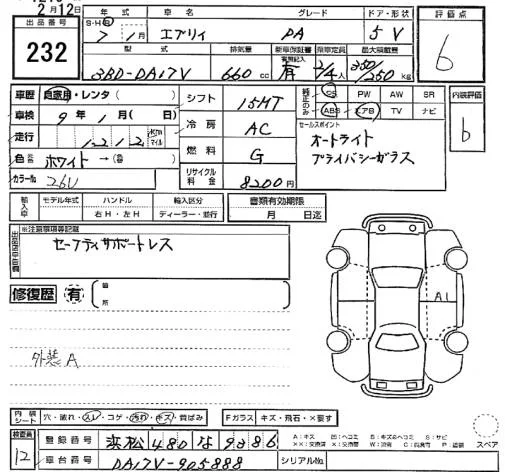 2月12日
出品番号
232
年式 車名 グレード ドア・形状
S・H・R 7 1月 エブリィ PA 5 V
型式 排気量 新車保証書 乗車定員 最大積載量
3BD-DA17V 660cc 有 2/4人 350/250kg
評価点
6
車歴 自家用・レンタ( )
車検 9年1月( 日)
走行 1212 km マイル
色 ホワイト→(色 )
カラーNo 26U
シフト 15MT
冷房 AC
燃料 G
リサイクル料金 8200円
純正のみ PS PW AW SR
ABS エアB TV ナビ
セールスポイント
オートライト
プライバシーガラス
内装評価
b
輸入車 モデル年式 ハンドル 輸入区分
右H・左H ディーラー・並行
書類有効期限
月 日迄
※注意事項等記載
セーフティサポートレス
修復歴 有 ( 箇所 )
A1
外装A
内装シート 穴・破れ・スレ・コゲ・汚れ・キズ・黄ばみ Fガラス キズ・飛石・×要す
検査員
12
登録番号 浜松 480 な 9386
車台番号 DA17V-905888
シリアルNo.
A:キズ U:ヘコミ B:キズ&ヘコミ S:サビ
××:交換済 X:交換要 W:波有 C:腐食有 P:塗装
スペア